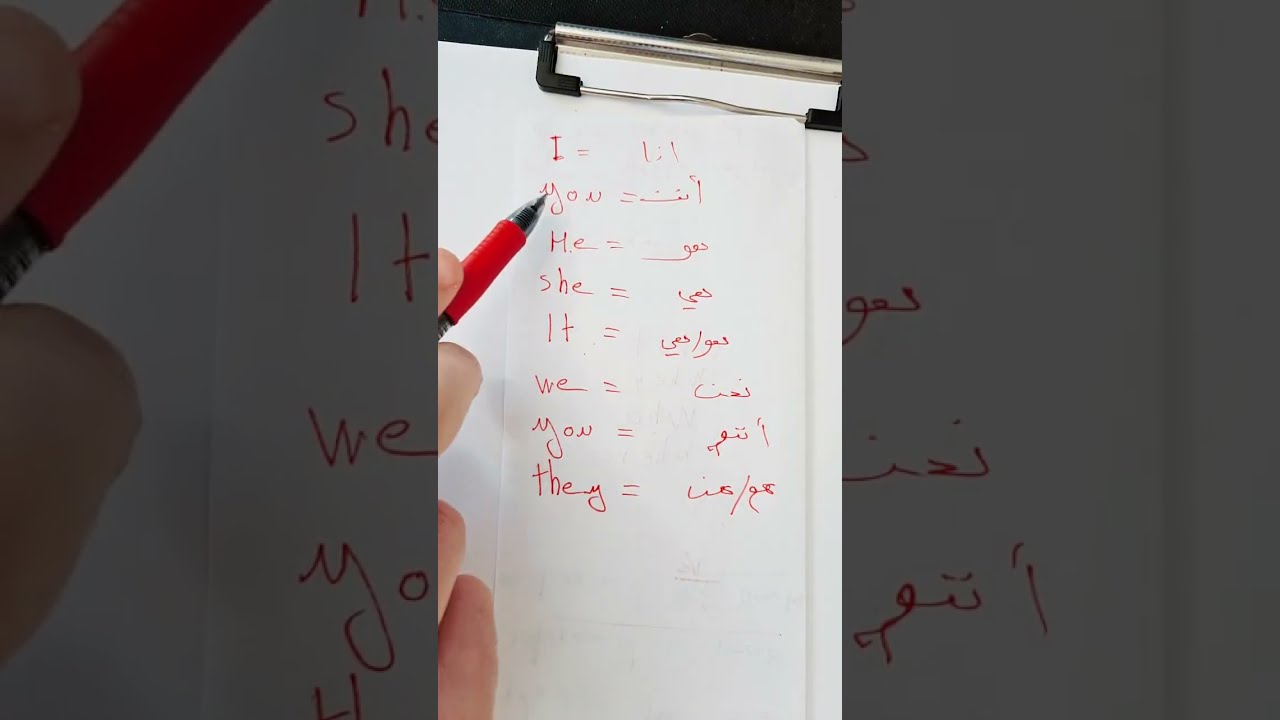 I = انا
you = أنت
He = هو
she = هي
It = هو/هي
we = نحن
you = أنتم
they = هم/هن